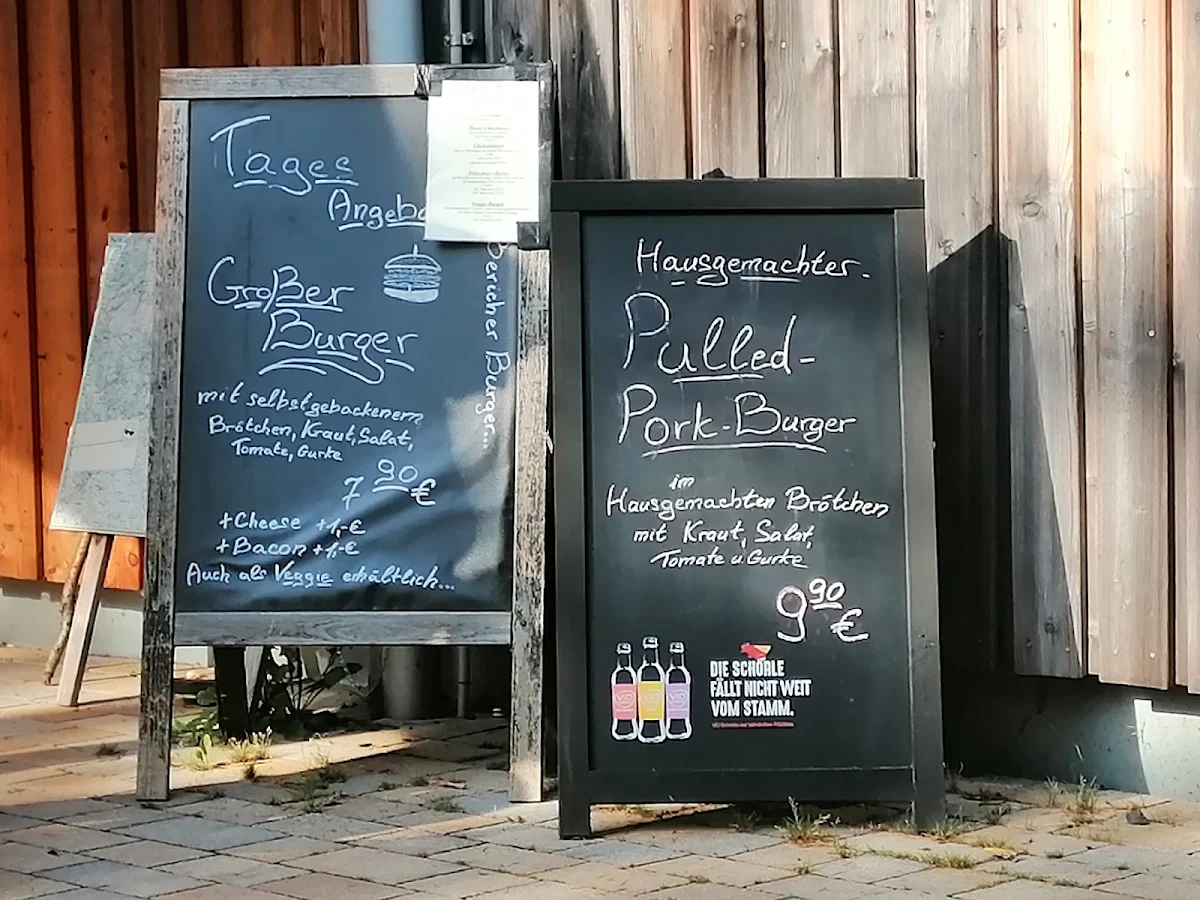 Tages
Angebo
Großer
Burger
mit selbstgebackenem
Brötchen, Kraut, Salat,
Tomate, Gurke
7 90 €
+Cheese +1,-€
+Bacon +1,-€
Auch als Veggie erhältlich...
Bericher Burger...
Hausgemachter
Pulled-
Pork-Burger
im
Hausgemachten Brötchen
mit Kraut, Salat,
Tomate u Gurke
9 90 €
DIE SCHORLE
FÄLLT NICHT WEIT
VOM STAMM.
ViO